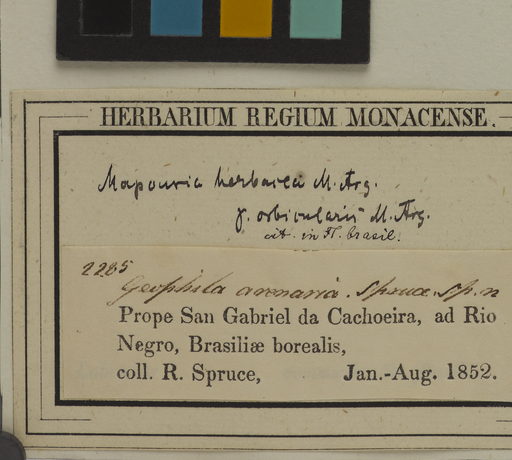 HERBARIUM REGIUM MONACENSE.
Mapouria herbacea M. Arg.
γ. orbicularis M. Arg.
cit. in Fl. brasil.
2285
Geophila arenaria. Spruce. sp. n
Prope San Gabriel da Cachoeira, ad Rio
Negro, Brasiliæ borealis,
coll. R. Spruce, Jan.-Aug. 1852.